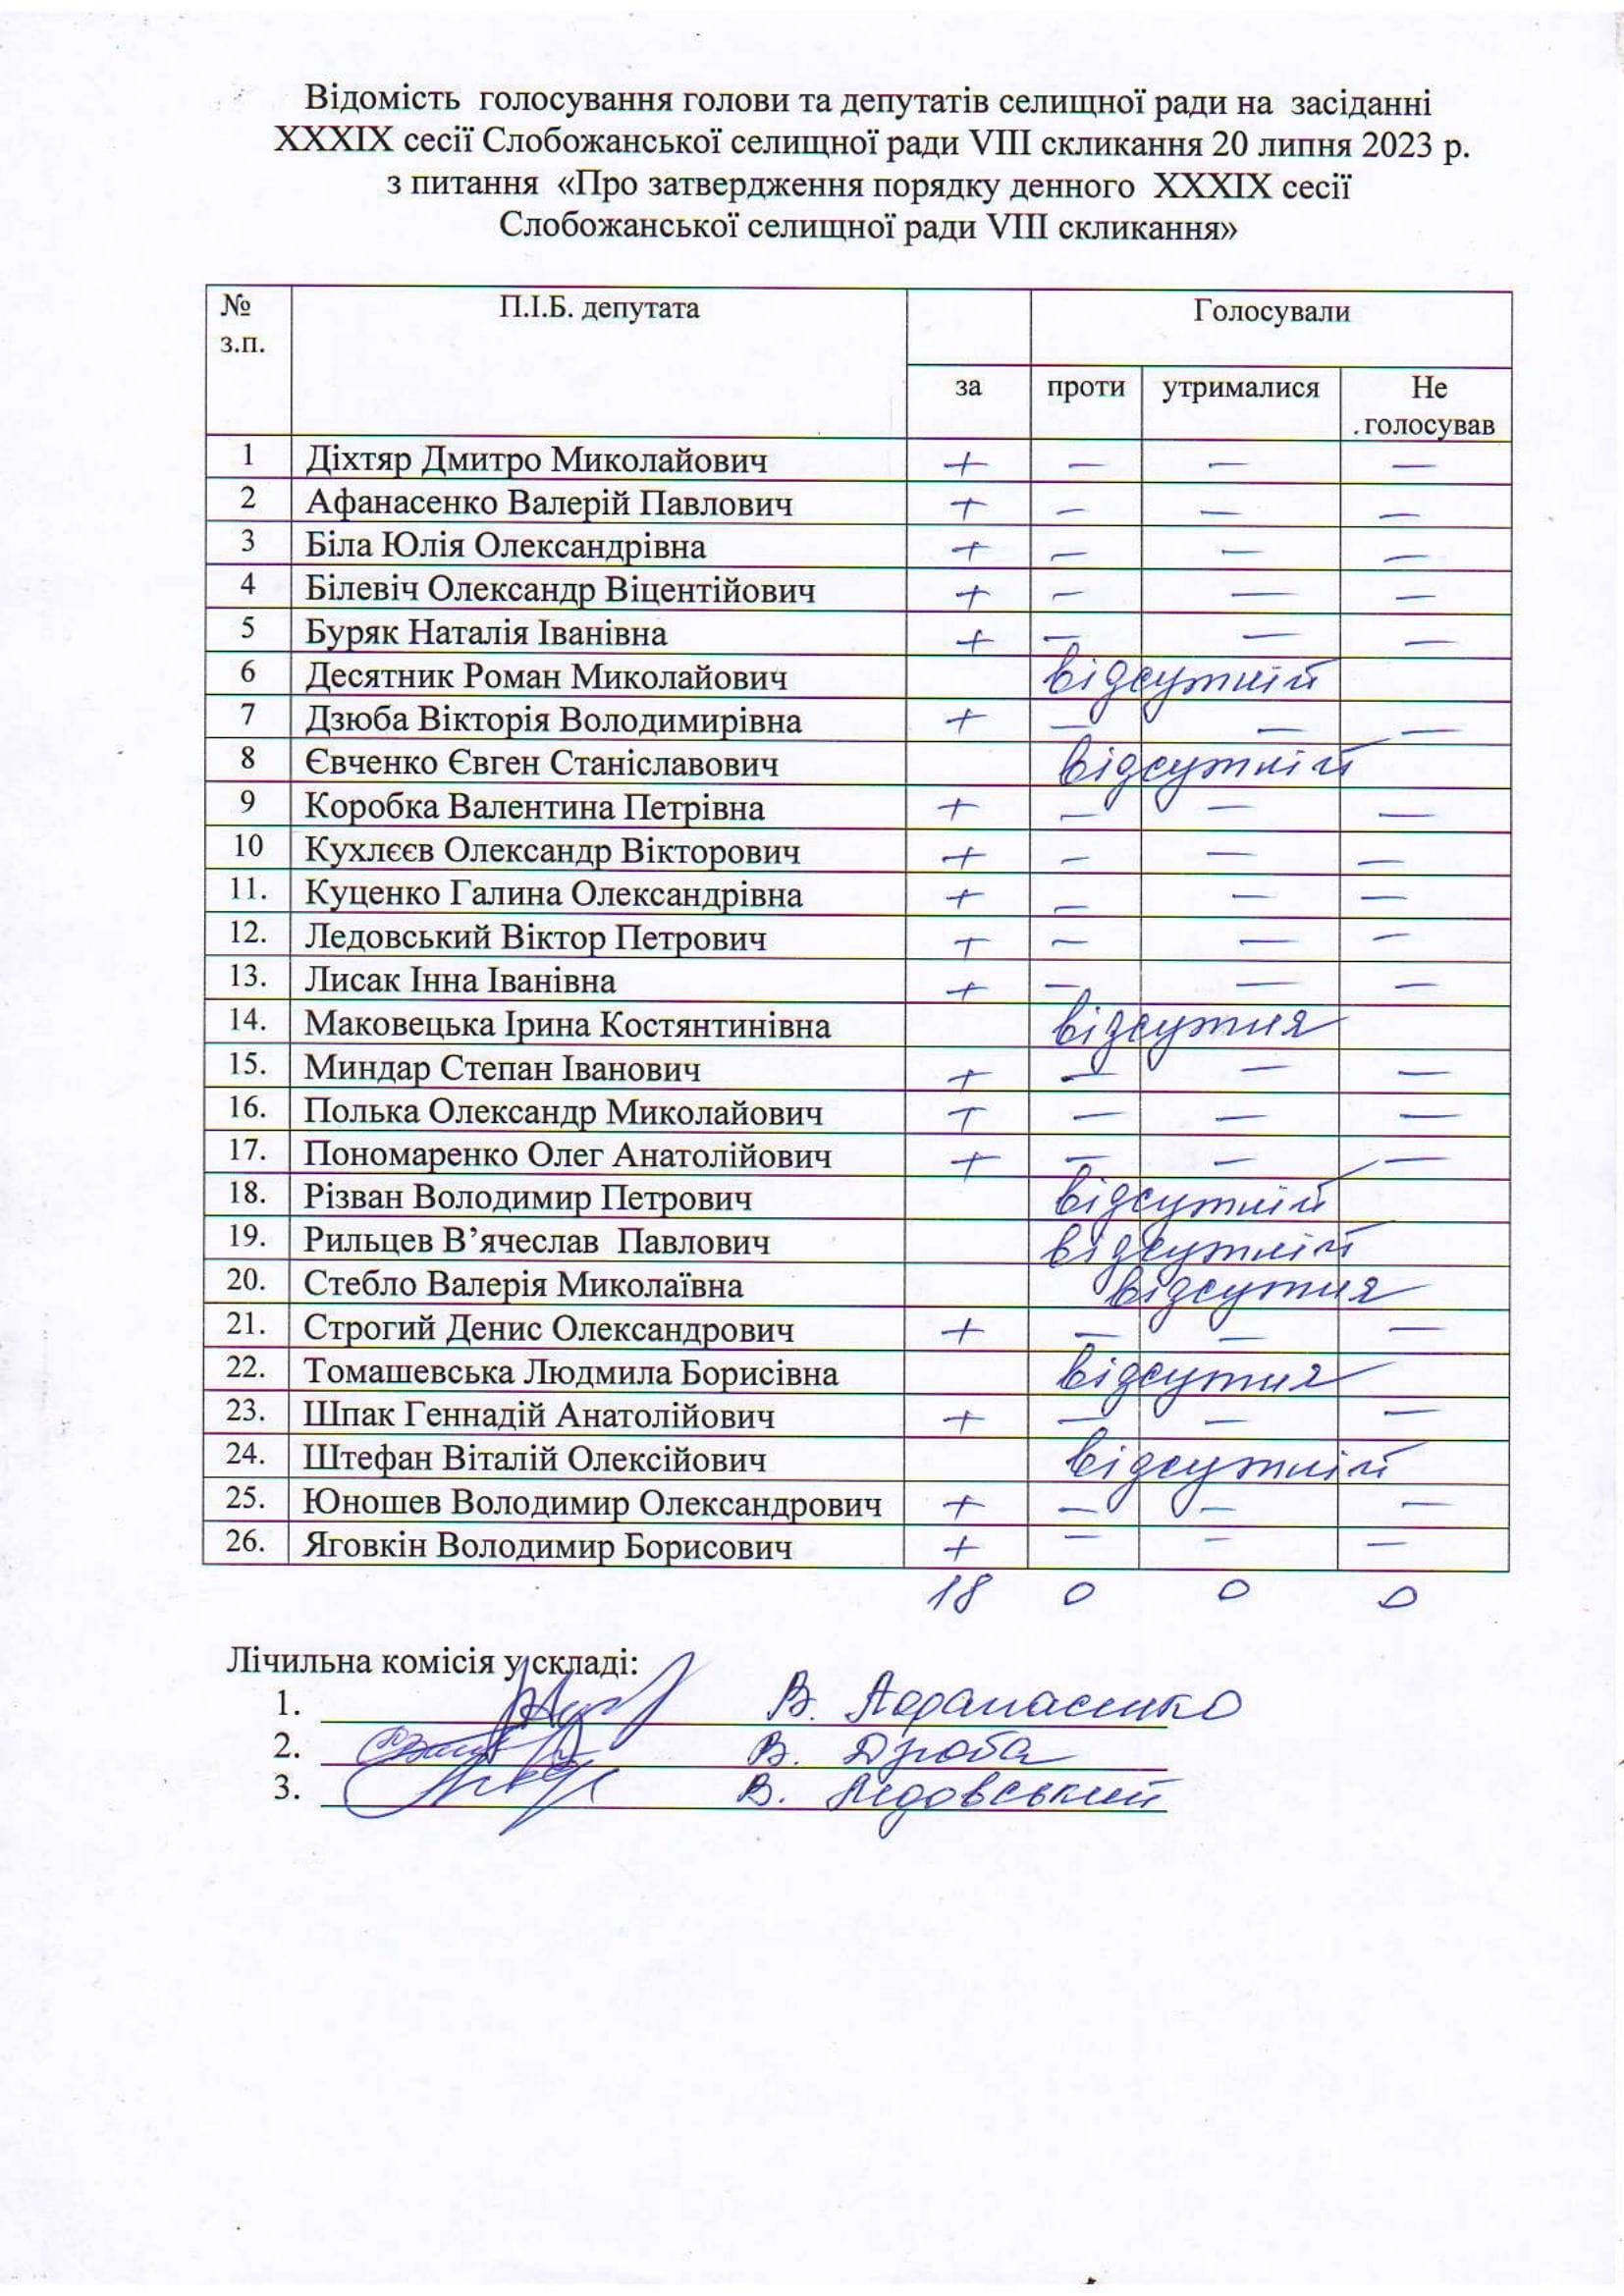 Відомість голосування голови та депутатів селищної ради на засіданні
XXXIX сесії Слобожанської селищної ради VIII скликання 20 липня 2023 р.
з питання «Про затвердження порядку денного XXXIX сесії
Слобожанської селищної ради VIII скликання»
№ з.п. П.І.Б. депутата Голосували
за проти утрималися Не голосував
1 Діхтяр Дмитро Миколайович + — — —
2 Афанасенко Валерій Павлович + — — —
3 Біла Юлія Олександрівна + — — —
4 Білевіч Олександр Віцентійович + — — —
5 Буряк Наталія Іванівна + — — —
6 Десятник Роман Миколайович відсутній
7 Дзюба Вікторія Володимирівна + — — —
8 Євченко Євген Станіславович відсутній
9 Коробка Валентина Петрівна + — — —
10 Кухлєєв Олександр Вікторович + — — —
11. Куценко Галина Олександрівна + — — —
12. Ледовський Віктор Петрович + — — —
13. Лисак Інна Іванівна + — — —
14. Маковецька Ірина Костянтинівна відсутня
15. Миндар Степан Іванович + — — —
16. Полька Олександр Миколайович + — — —
17. Пономаренко Олег Анатолійович + — — —
18. Різван Володимир Петрович відсутній
19. Рильцев В’ячеслав Павлович відсутній
20. Стебло Валерія Миколаївна відсутня
21. Строгий Денис Олександрович + — — —
22. Томашевська Людмила Борисівна відсутня
23. Шпак Геннадій Анатолійович + — — —
24. Штефан Віталій Олексійович відсутній
25. Юношев Володимир Олександрович + — — —
26. Яговкін Володимир Борисович + — — —
18 0 0 0
Лічильна комісія у складі:
1. В. Афанасенко
2. В. Дзюба
3. В. Ледовський